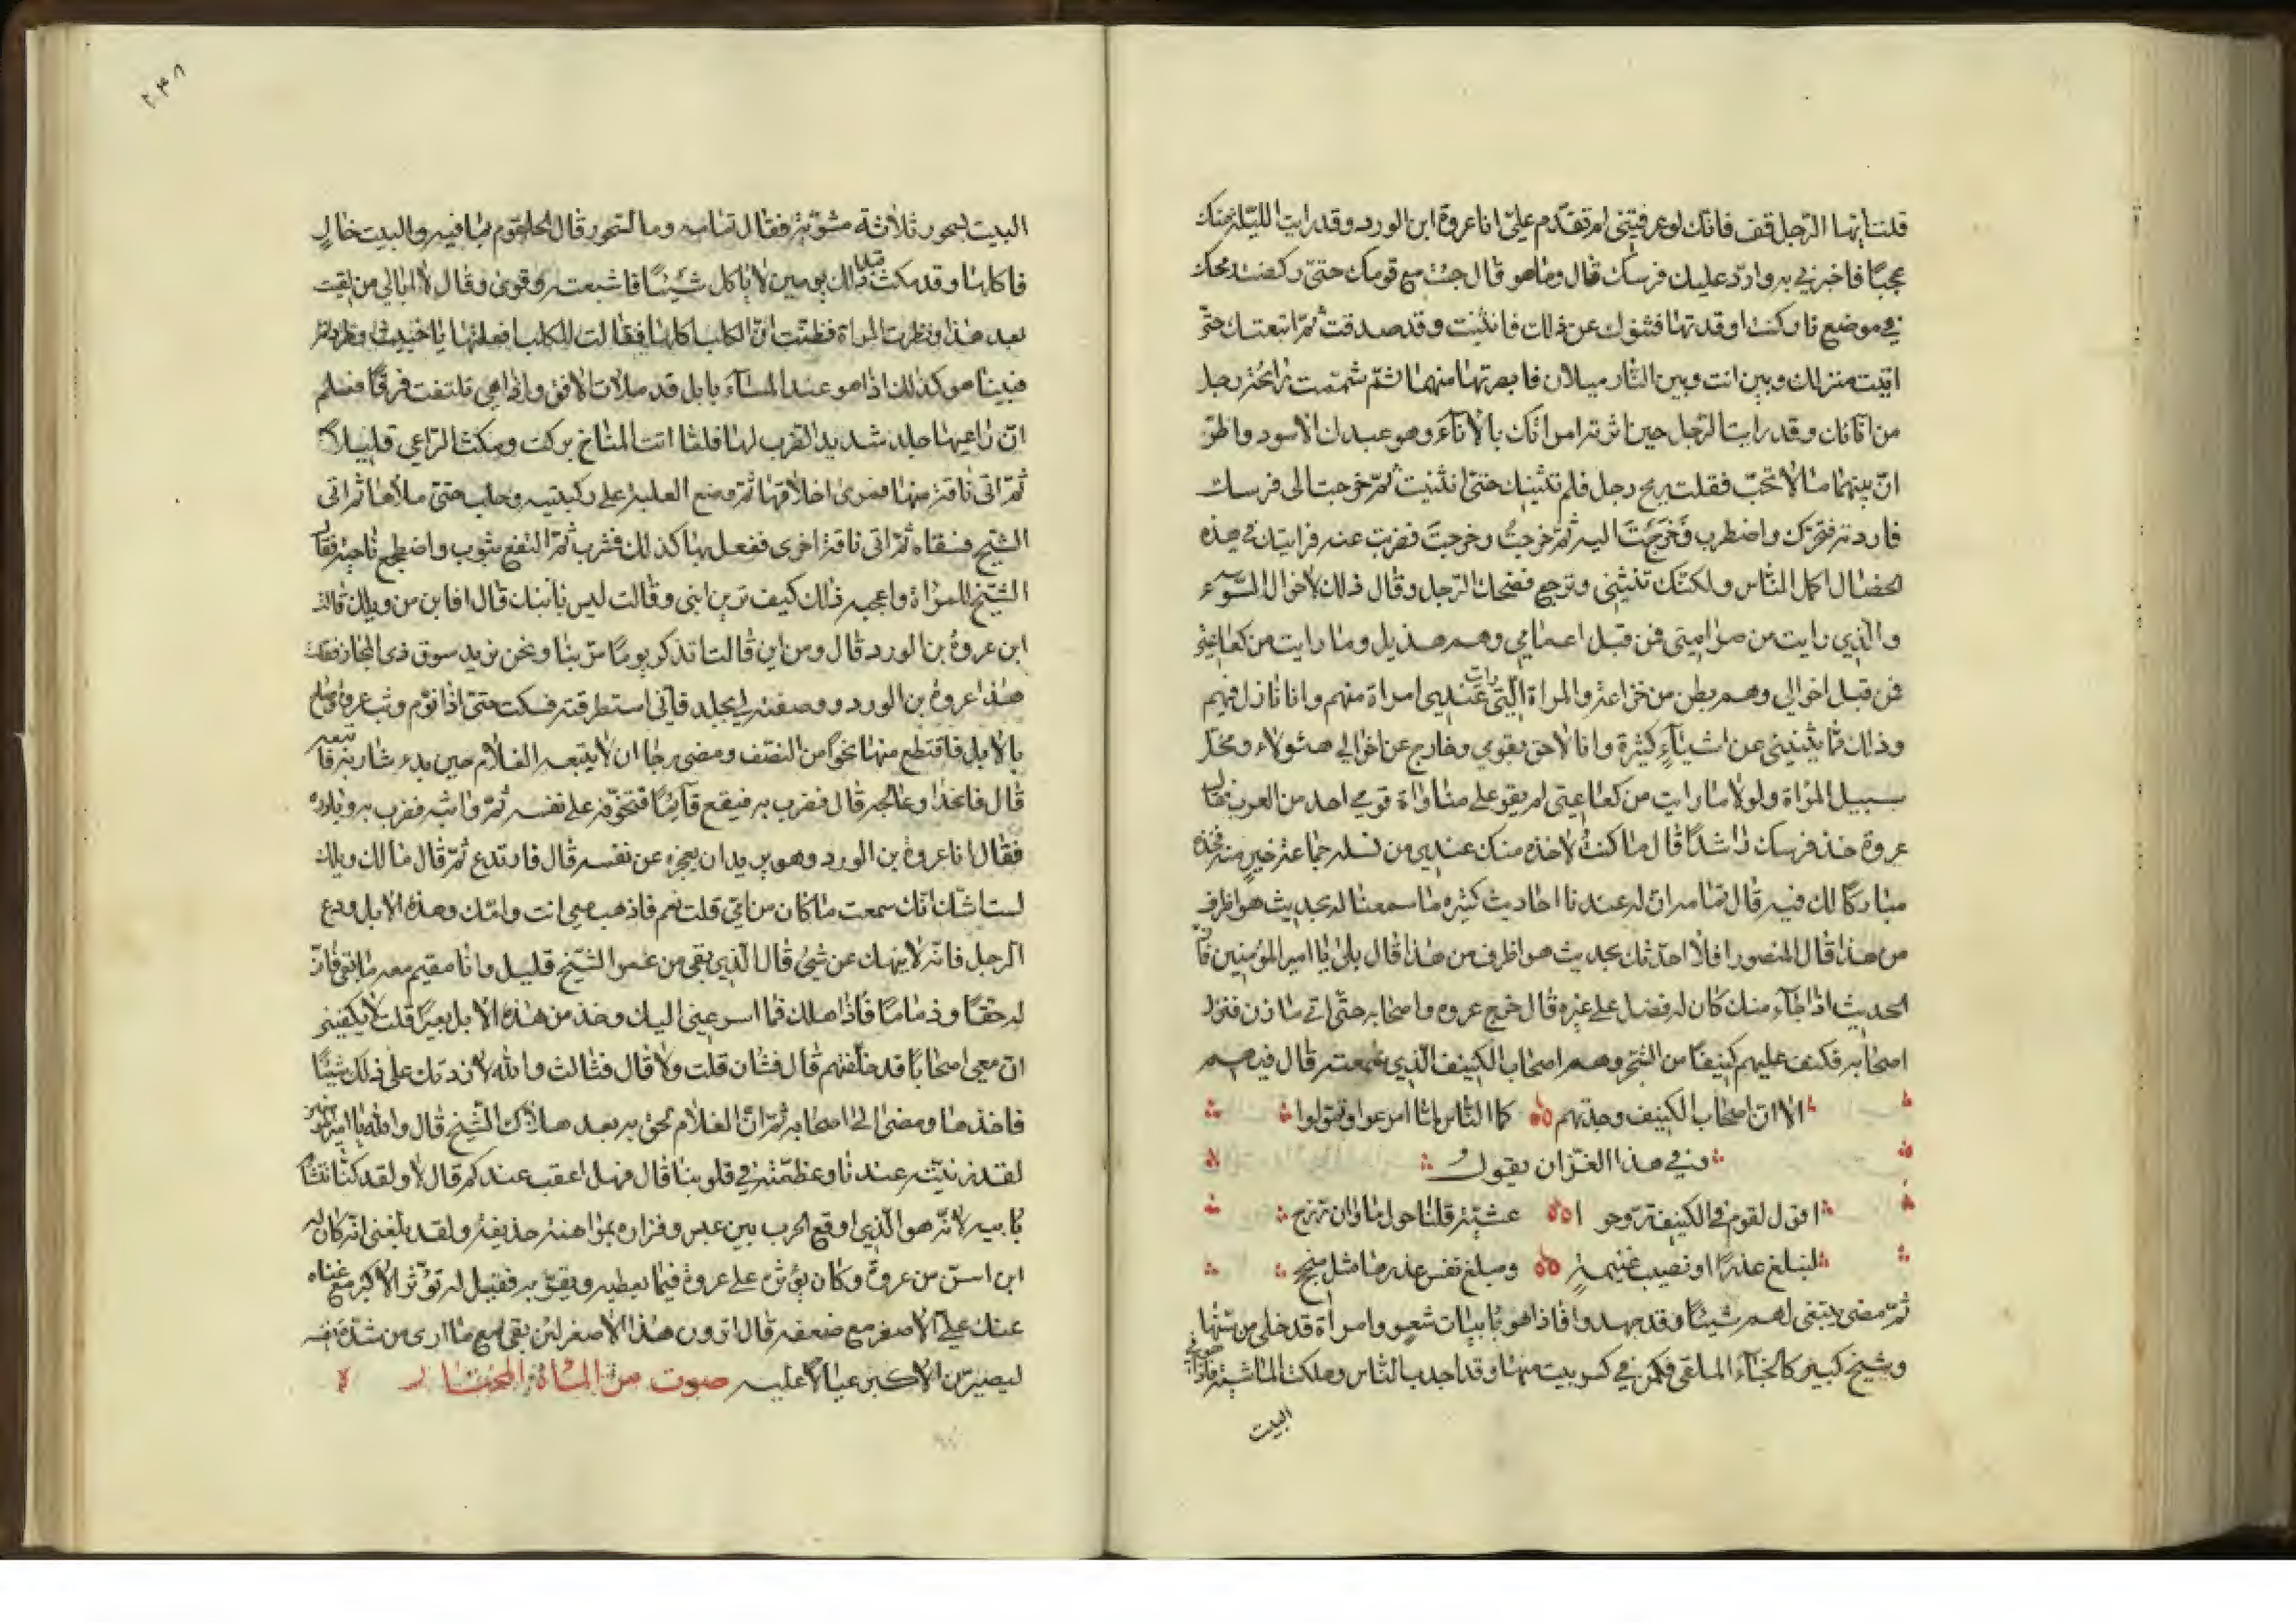 قلت ايها الرجل قف فانك لو عرفتني لم تقدم علي انا عروة ابن الورد وقد رايت الليلة منك
عجبا فاخبرني به واردد عليك فرسك قال وما هو قال جئت مع قومك حتى ركضت رمحك
في موضع نار كنت اوقدتها فثنوك عن ذلك فانثنيت وقد صدقت ثم اتبعتك حتى
اتيت منزلك وبين انت وبين النار ميلان فابصرتها منهما ثم شممت رائحة رجل
من انائك وقد رايت الرجل حين اثرته امراتك بالاناء وهو عبدك الاسود واظن
ان بينهما ما لا تحب فقلت ريح رجل فلم تثنيك حتى انثنيت ثم خرجت الى فرسك
فاردته فتحرك واضطرب فخرجت اليه ثم خرجت وخرجت فضربت عنه فرايتك في هذه
الخصال اكمل الناس ولكنك تنثني وترجع فضحك الرجل وقال ذلك لاخوال السوء
والذي رايت من صرامتي فمن قبل اعمامي وهم هذيل وما رايت من كعاعتي
فمن قبل اخوالي وهم بطن من خزاعة والمراة التي رايت عندي امراة منهم وانا نازل فيهم
وذلك مما يثنيني عن اشياء كثيرة وانا لاحق بقومي وخارج عن اخوالي هئولاء ومخل
سبيل المراة ولولا ما رايت من كعاعتي لم يقو على مناواة قومي احد من العرب فقال
عروة خذ فرسك راشدا قال ما كنت لاخذه منك عندي من نسله جماعة خير منه فخذه
مباركا لك فيه قال ثمامه ان له عندنا احاديث كثيره ما سمعنا له بحديث هو اظرف
من هذا قال المنصور افلا احدثك بحديث هو اظرف من هذا قال بلى يا امير المؤمنين فان
الحديث اذا جاء منك كان له فضل على غيره قال خرج عروه واصحابه حتى اتى ماوان فنزل
اصحابه فكنف عليهم كنيفا من الشجر وهم اصحاب الكنيف الذي سمعته قال فيهم
الا ان اصحاب الكنيف وجدتهم كما الناس لما امرعوا وتمولوا
وفي هذا الغزان يقول
اقول لقوم في الكنيف تروحوا عشية قلنا حول ماوان رزح
لنبلغ عذرا او نصيب غنيمة ومبلغ نفس عذرها مثل منجح
ثم مضى يبتغي لهم شيئا وقد جهدوا فاذا هو بابيات شعر وامراة قد خلى من سنها
وشيخ كبير كالخباء الملقى فكمن في كسر بيت منها وقد اجدب الناس وهلكت الماشية فاذا هو في
البيت
٢٠٣٨
البيت بسحور ثلاثة مشوية فقال ثمامه وما السحور قال الحلقوم بما فيه والبيت خال
فاكلها وقد مكث قبل ذلك يومين لا ياكل شيئا فاشبعته وقوى وقال لا ابالي من لقيت
بعد هذا ونظرت المراة فظنت ان الكلب اكلها فقالت للكلب افعلتها يا خبيث وطردته
فبينا هو كذلك اذا هو عند المساء بابل قد ملات الافق واذا هي تلتفت فرقا فعلم
ان راعيها جلد شديد الضرب لها فلما اتت المناخ بركت ومكث الراعي قليلا
ثم اتى ناقة منها فمرى اخلافها ثم وضع العلبة على ركبتيه وحلب حتى ملاها ثم اتى
الشيخ فسقاه ثم اتى ناقة اخرى ففعل بها كذلك فشرب ثم التفع بثوب واضطجع ناحية فقال
الشيخ للمراة واعجبه ذلك كيف ترين ابني وقالت ليس بابنك قال فابن من ويلك قالت
ابن عروة بن الورد قال ومن اين قالت اتذكر يوما مر بنا ونحن نريد سوق ذي المجاز فقلت
هذا عروة بن الورد ووصفته لي بجلد فاني استطرقته فسكت حتى اذا نوم وثب عروة وصاح
بالابل فاقتطع منها نحوا من النصف ومضى رجا ان لا يتبعه الغلام حين بدء شاربه فاتبعه
قال فاتخذا وعالجه قال فضرب به فيقع قائما فتخوفه على نفسه ثم واثبه فضرب به وبادره
فقال انا عروة بن الورد وهو يريد ان يعجزه عن نفسه قال فارتدع ثم قال ما لك ويلك
لست اشك انك سمعت ما كان من امي قلت نعم فاذهب معي انت وامك وهذه الابل ودع
الرجل فانه لا ينهك عن شئ قال الذي بقي من عمر الشيخ قليل وانا مقيم معه ما بقي فان
له حقا وذماما فاذا هلك فما اسرعني اليك وخذ من هذه الابل بعيرا قلت لا يكفيني
ان معي اصحابا قد خلفتهم قال فثان قلت ولا قال فثالث والله لا زدتك على ذلك شيئا
فاخذها ومضى الى اصحابه ثم ان الغلام لحق به بعد هلاك الشيخ قال والله يا امير المؤمنين
لقد زينته عندنا وعظمته في قلوبنا قال فهل اعقب عندكم قال لا ولقد كنا نتشاءم
بابيه لانه هو الذي اوقع الحرب بين عبس وفزاره بمراهنة حذيفة ولقد بلغني انه كان له
ابن اسن من عروة وكان يؤثره على عروة فيما يعطيه ويقربه فقيل له تؤثر الاكبر مع غناه
عنك على الاصغر مع ضعفه قال اترون هذا الاصغر لئن بقي مع ما ارى من شدة نفسه
ليصيرن الاكبر عيالا عليه صوت من المائة المختار